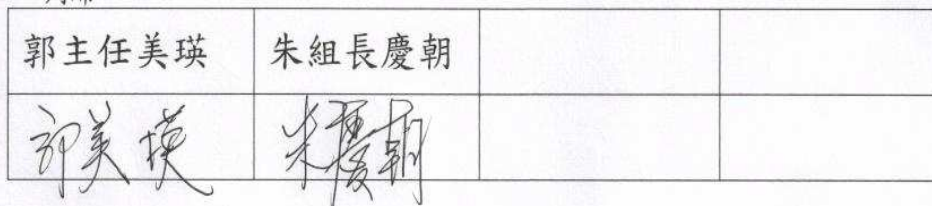 郭主任美瑛 朱組長慶朝
郭美瑛 朱慶朝